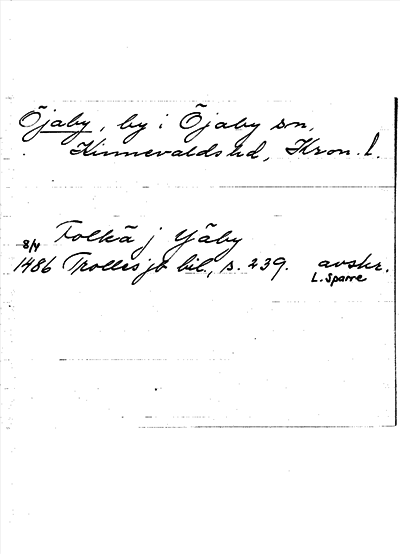 Öjaby, by i Öjaby sn,
Kinnevalds hd, Kron. l.
Folkä j Yäby
8/4
1486 Trolles jb bil., s. 239. avskr.
L. Sparre